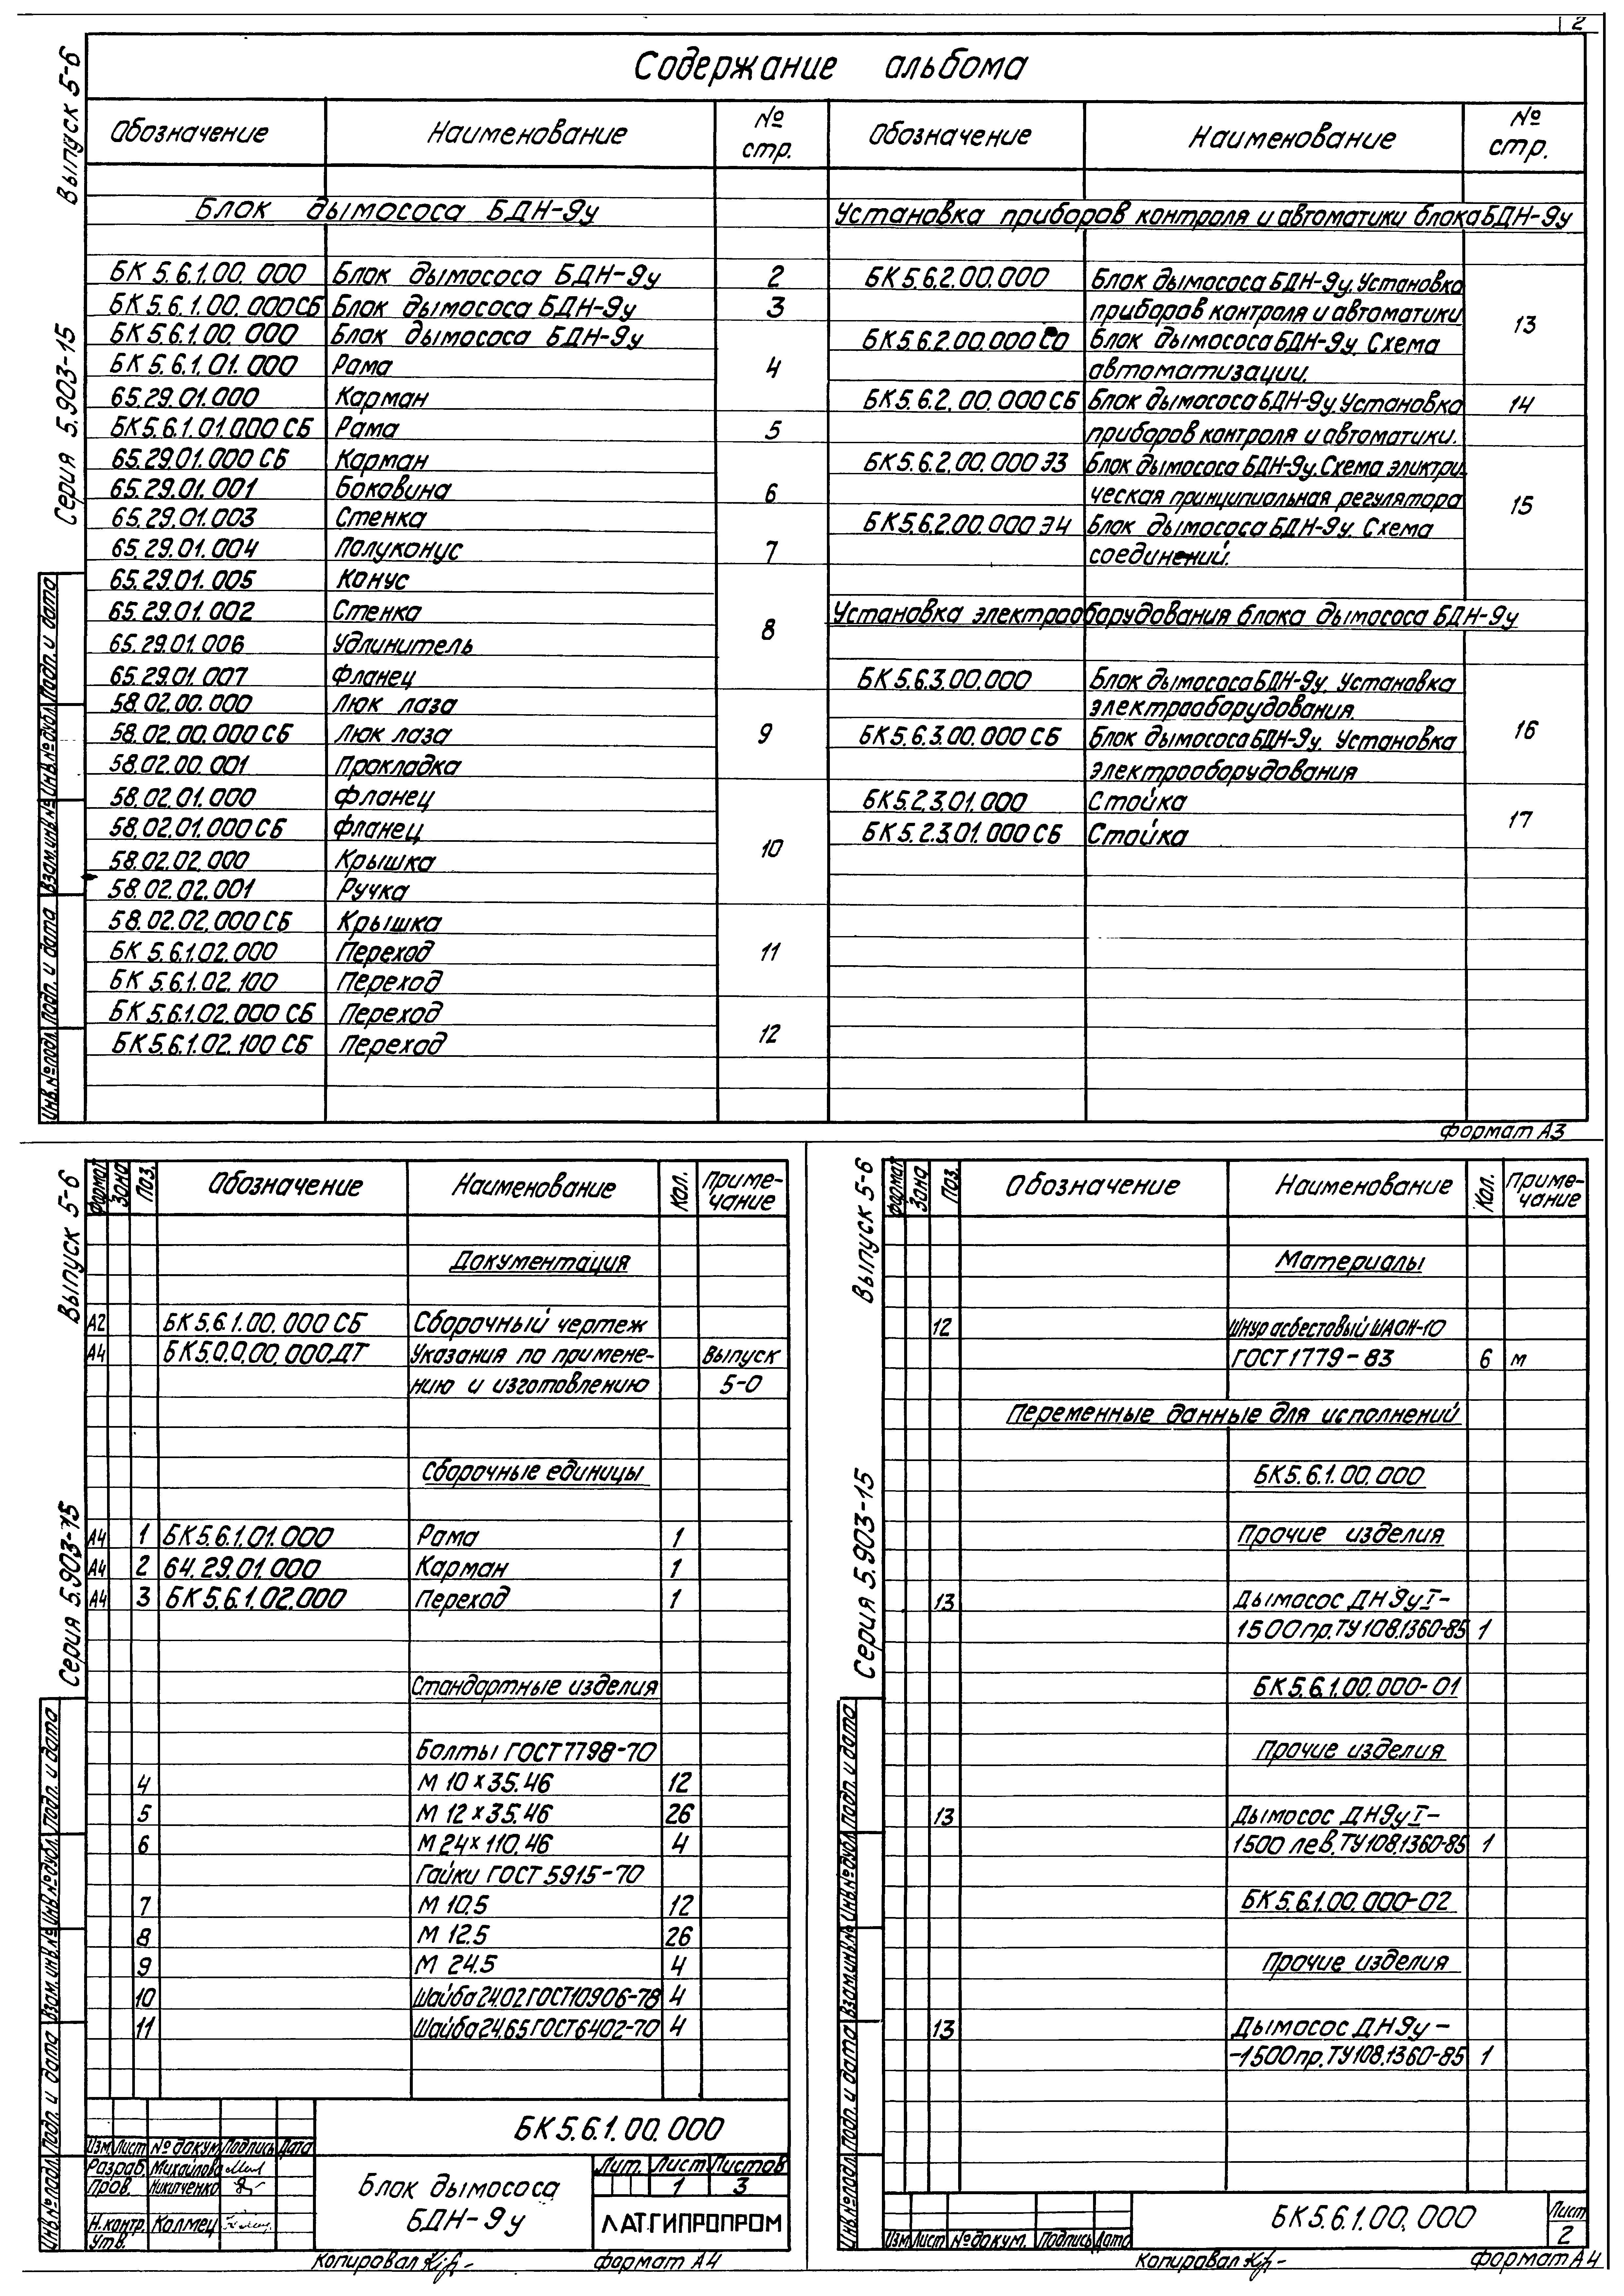 2
Содержание альбома
Выпуск 5-6
Серия 5.903-15
Обозначение Наименование № стр. Обозначение Наименование № стр.
Блок дымососа БДН-9у
БК 5.6.1.00.000 Блок дымососа БДН-9у 2
БК 5.6.1.00.000СБ Блок дымососа БДН-9у 3
БК 5.6.1.00.000 Блок дымососа БДН-9у
БК 5.6.1.01.000 Рама 4
65.29.01.000 Карман
БК5.6.1.01.000 СБ Рама 5
65.29.01.000 СБ Карман
65.29.01.001 Боковина 6
65.29.01.003 Стенка
65.29.01.004 Полуконус 7
65.29.01.005 Конус
65.29.01.002 Стенка 8
65.29.01.006 Удлинитель
65.29.01.007 Фланец
58.02.00.000 Люк лаза
58.02.00.000 СБ Люк лаза 9
58.02.00.001 Прокладка
58.02.01.000 Фланец
58.02.01.000 СБ Фланец 10
58.02.02.000 Крышка
58.02.02.001 Ручка
58.02.02.000 СБ Крышка
БК 5.6.1.02.000 Переход 11
БК 5.6.1.02.100 Переход
БК 5.6.1.02.000 СБ Переход 12
БК 5.6.1.02.100 СБ Переход
Установка приборов контроля и автоматики блока БДН-9у
БК 5.6.2.00.000 Блок дымососа БДН-9у. Установка
приборов контроля и автоматики 13
БК 5.6.2.00.000 СО Блок дымососа БДН-9у. Схема
автоматизации.
БК 5.6.2.00.000 СБ Блок дымососа БДН-9у. Установка 14
приборов контроля и автоматики.
БК 5.6.2.00.000 ЭЗ Блок дымососа БДН-9у. Схема эликтри
ческая принципиальная регулятора 15
БК5.6.2.00.000 Э4 Блок дымососа БДН-9у. Схема
соединений.
Установка электрооборудования блока дымососа БДН-9у
БК 5.6.3.00.000 Блок дымососа БДН-9у. Установка
электрооборудования. 16
БК 5.6.3.00.000 СБ Блок дымососа БДН-9у. Установка
электрооборудования
БК5.2.3.01.000 Стойка 17
БК 5.2.3.01.000 СБ Стойка
Инв.№подл. Подп. и дата Взам.инв.№ Инв.№дубл. Подп. и дата
формат А3
Выпуск 5-6
Серия 5.903-15
Формат Зона Поз. Обозначение Наименование Кол. Приме-
чание
Документация
А2 БК5.6.1.00.000 СБ Сборочный чертеж
А4 БК5.0.0.00.000ДТ Указания по примене- Выпуск
нию и изготовлению 5-0
Сборочные единицы
А4 1 БК5.6.1.01.000 Рама 1
А4 2 64.29.01.000 Карман 1
А4 3 БК5.6.1.02.000 Переход 1
Стандартные изделия
Болты ГОСТ7798-70
4 М 10×35.46 12
5 М 12×35.46 26
6 М 24×110.46 4
Гайки ГОСТ 5915-70
7 М 10.5 12
8 М 12.5 26
9 М 24.5 4
10 Шайба 24.02 ГОСТ10906-78 4
11 Шайба 24.65 ГОСТ6402-70 4
БК5.6.1.00.000
Изм. Лист № докум. Подпись Дата
Разраб. Михайлова
Пров. Никитченко
Н.контр. Калмец
Утв.
Блок дымососа
БДН-9у
Лит. Лист Листов
1 3
ЛАТГИПРОПРОМ
Инв.№подл. Подп. и дата Взам.инв.№ Инв.№дубл. Подп. и дата
Копировал формат А4
Выпуск 5-6
Серия 5.903-15
Формат Зона Поз. Обозначение Наименование Кол. Приме-
чание
Материалы
12 Шнур асбестовый ШАОН-10
ГОСТ 1779-83 6 м
Переменные данные для исполнений
БК5.6.1.00.000
Прочие изделия
13 Дымосос ДН9уI-
1500пр.ТУ108.1360-85 1
БК5.6.1.00.000-01
Прочие изделия
13 Дымосос ДН9уI-
1500 лев.ТУ108.1360-85 1
БК5.6.1.00.000-02
Прочие изделия
13 Дымосос ДН9у-
-1500пр.ТУ108.1360-85 1
Изм. Лист № докум. Подпись Дата
БК5.6.1.00.000
Лист
2
Инв.№подл. Подп. и дата Взам.инв.№ Инв.№дубл. Подп. и дата
Копировал формат А4